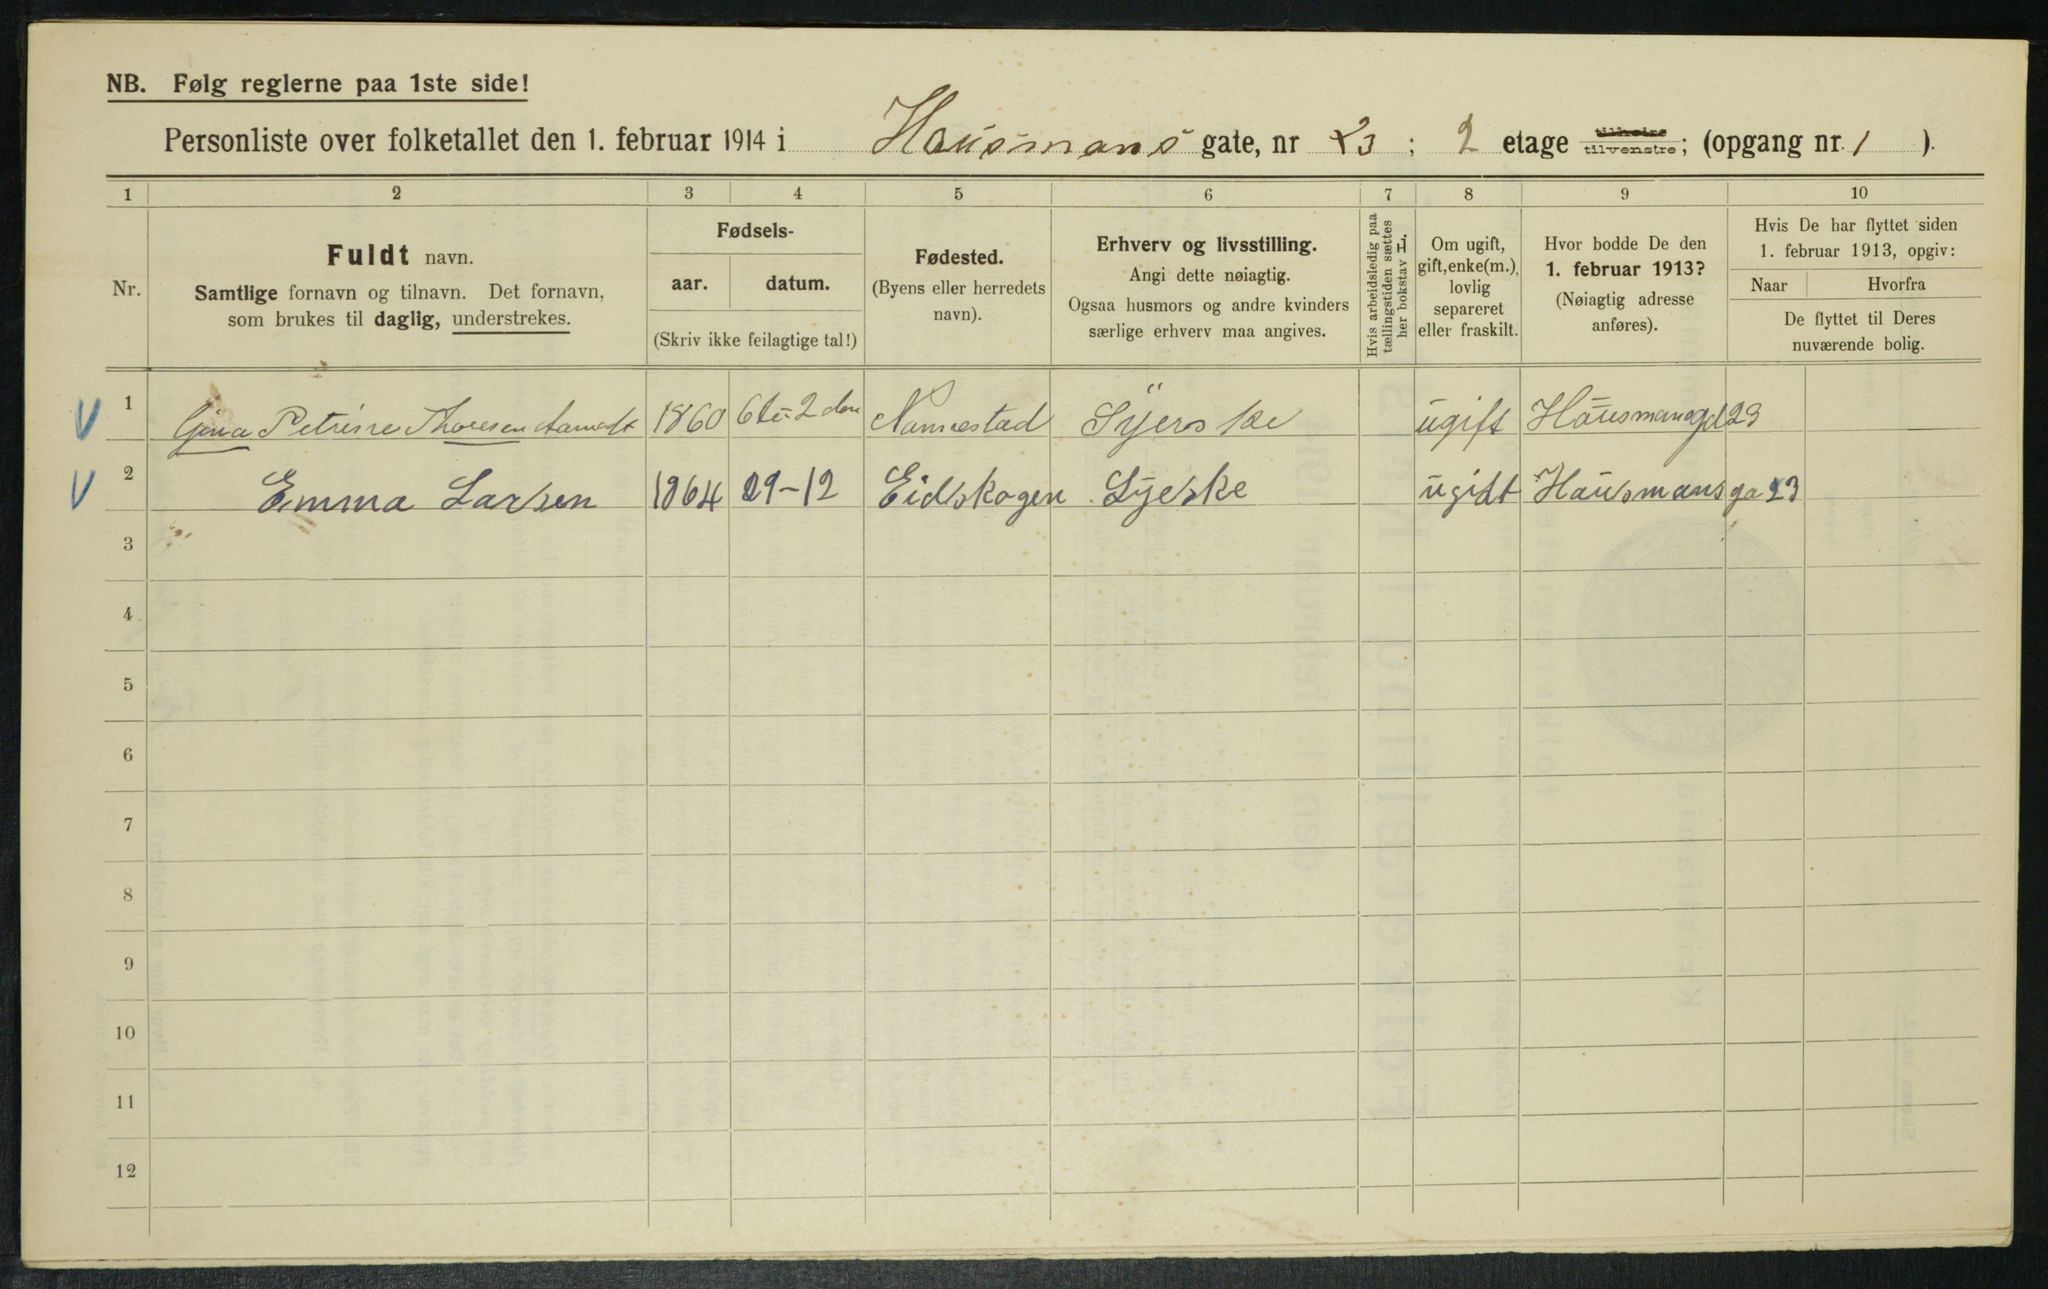 NB. Følg reglerne paa 1ste side!
Personliste over folketallet den 1. februar 1914 i Hausmans gate, nr 23; 2 etage tilhøire tilvenstre; (opgang nr. 1 ).
1 2 3 4 5 6 7 8 9 10
Nr.
Fuldt navn.
Samtlige fornavn og tilnavn. Det fornavn,
som brukes til daglig, understrekes.
Fødsels-
aar. datum.
(Skriv ikke feilagtige tal!)
Fødested.
(Byens eller herredets
navn).
Erhverv og livsstilling.
Angi dette nøiagtig.
Ogsaa husmors og andre kvinders
særlige erhverv maa angives.
Hvis arbeidsledig paa
tællingstiden sættes
her bokstav L.
Om ugift,
gift, enke(m.),
lovlig
separeret
eller fraskilt.
Hvor bodde De den
1. februar 1913?
(Nøiagtig adresse
anføres).
Hvis De har flyttet siden
1. februar 1913, opgiv:
Naar Hvorfra
De flyttet til Deres
nuværende bolig.
1 Gina Petrine Thoresen 1860 6te-2den Nannestad Syerske ugift Hausmansgd 23
2 Emma Larsen 1864 29-12 Eidskogen Syeske ugift Hausmansga 23
3
4
5
6
7
8
9
10
11
12